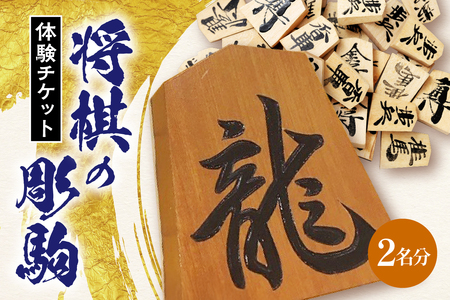 将棋の
彫駒
体験チケット
龍
2名分